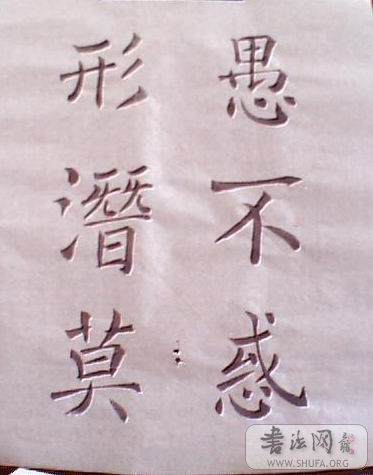 愚不惑
形潛莫
書法网
WWW.SHUFA.ORG